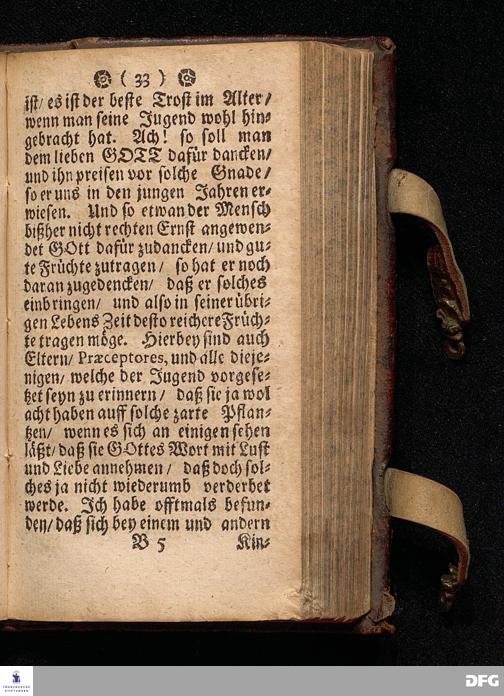 ( 33 )
ist/ es ist der beste Trost im Alter/
wenn man seine Jugend wohl hin-
gebracht hat. Ach! so soll man
dem lieben GOTT dafür dancken/
und ihn preisen vor solche Gnade/
so er uns in den jungen Jahren er-
wiesen. Und so etwan der Mensch
bißher nicht rechten Ernst angewen-
det GOtt dafür zudancken/ und gu-
te Früchte zutragen/ so hat er noch
daran zugedencken/ daß er solches
einbringen/ und also in seiner übri-
gen Lebens Zeit desto reichere Früch-
te tragen möge. Hierbey sind auch
Eltern/ Præceptores, und alle dieje-
nigen/ welche der Jugend vorgese-
tzet seyn zu erinnern/ daß sie ja wol
acht haben auff solche zarte Pflan-
tzen/ wenn es sich an einigen sehen
läßt/ daß sie GOttes Wort mit Lust
und Liebe annehmen/ daß doch sol-
ches ja nicht wiederumb verderbet
werde. Ich habe offtmals befun-
den/ daß sich bey einem und andern
B 5 Kin-
FRANCKESCHE
STIFTUNGEN
DFG